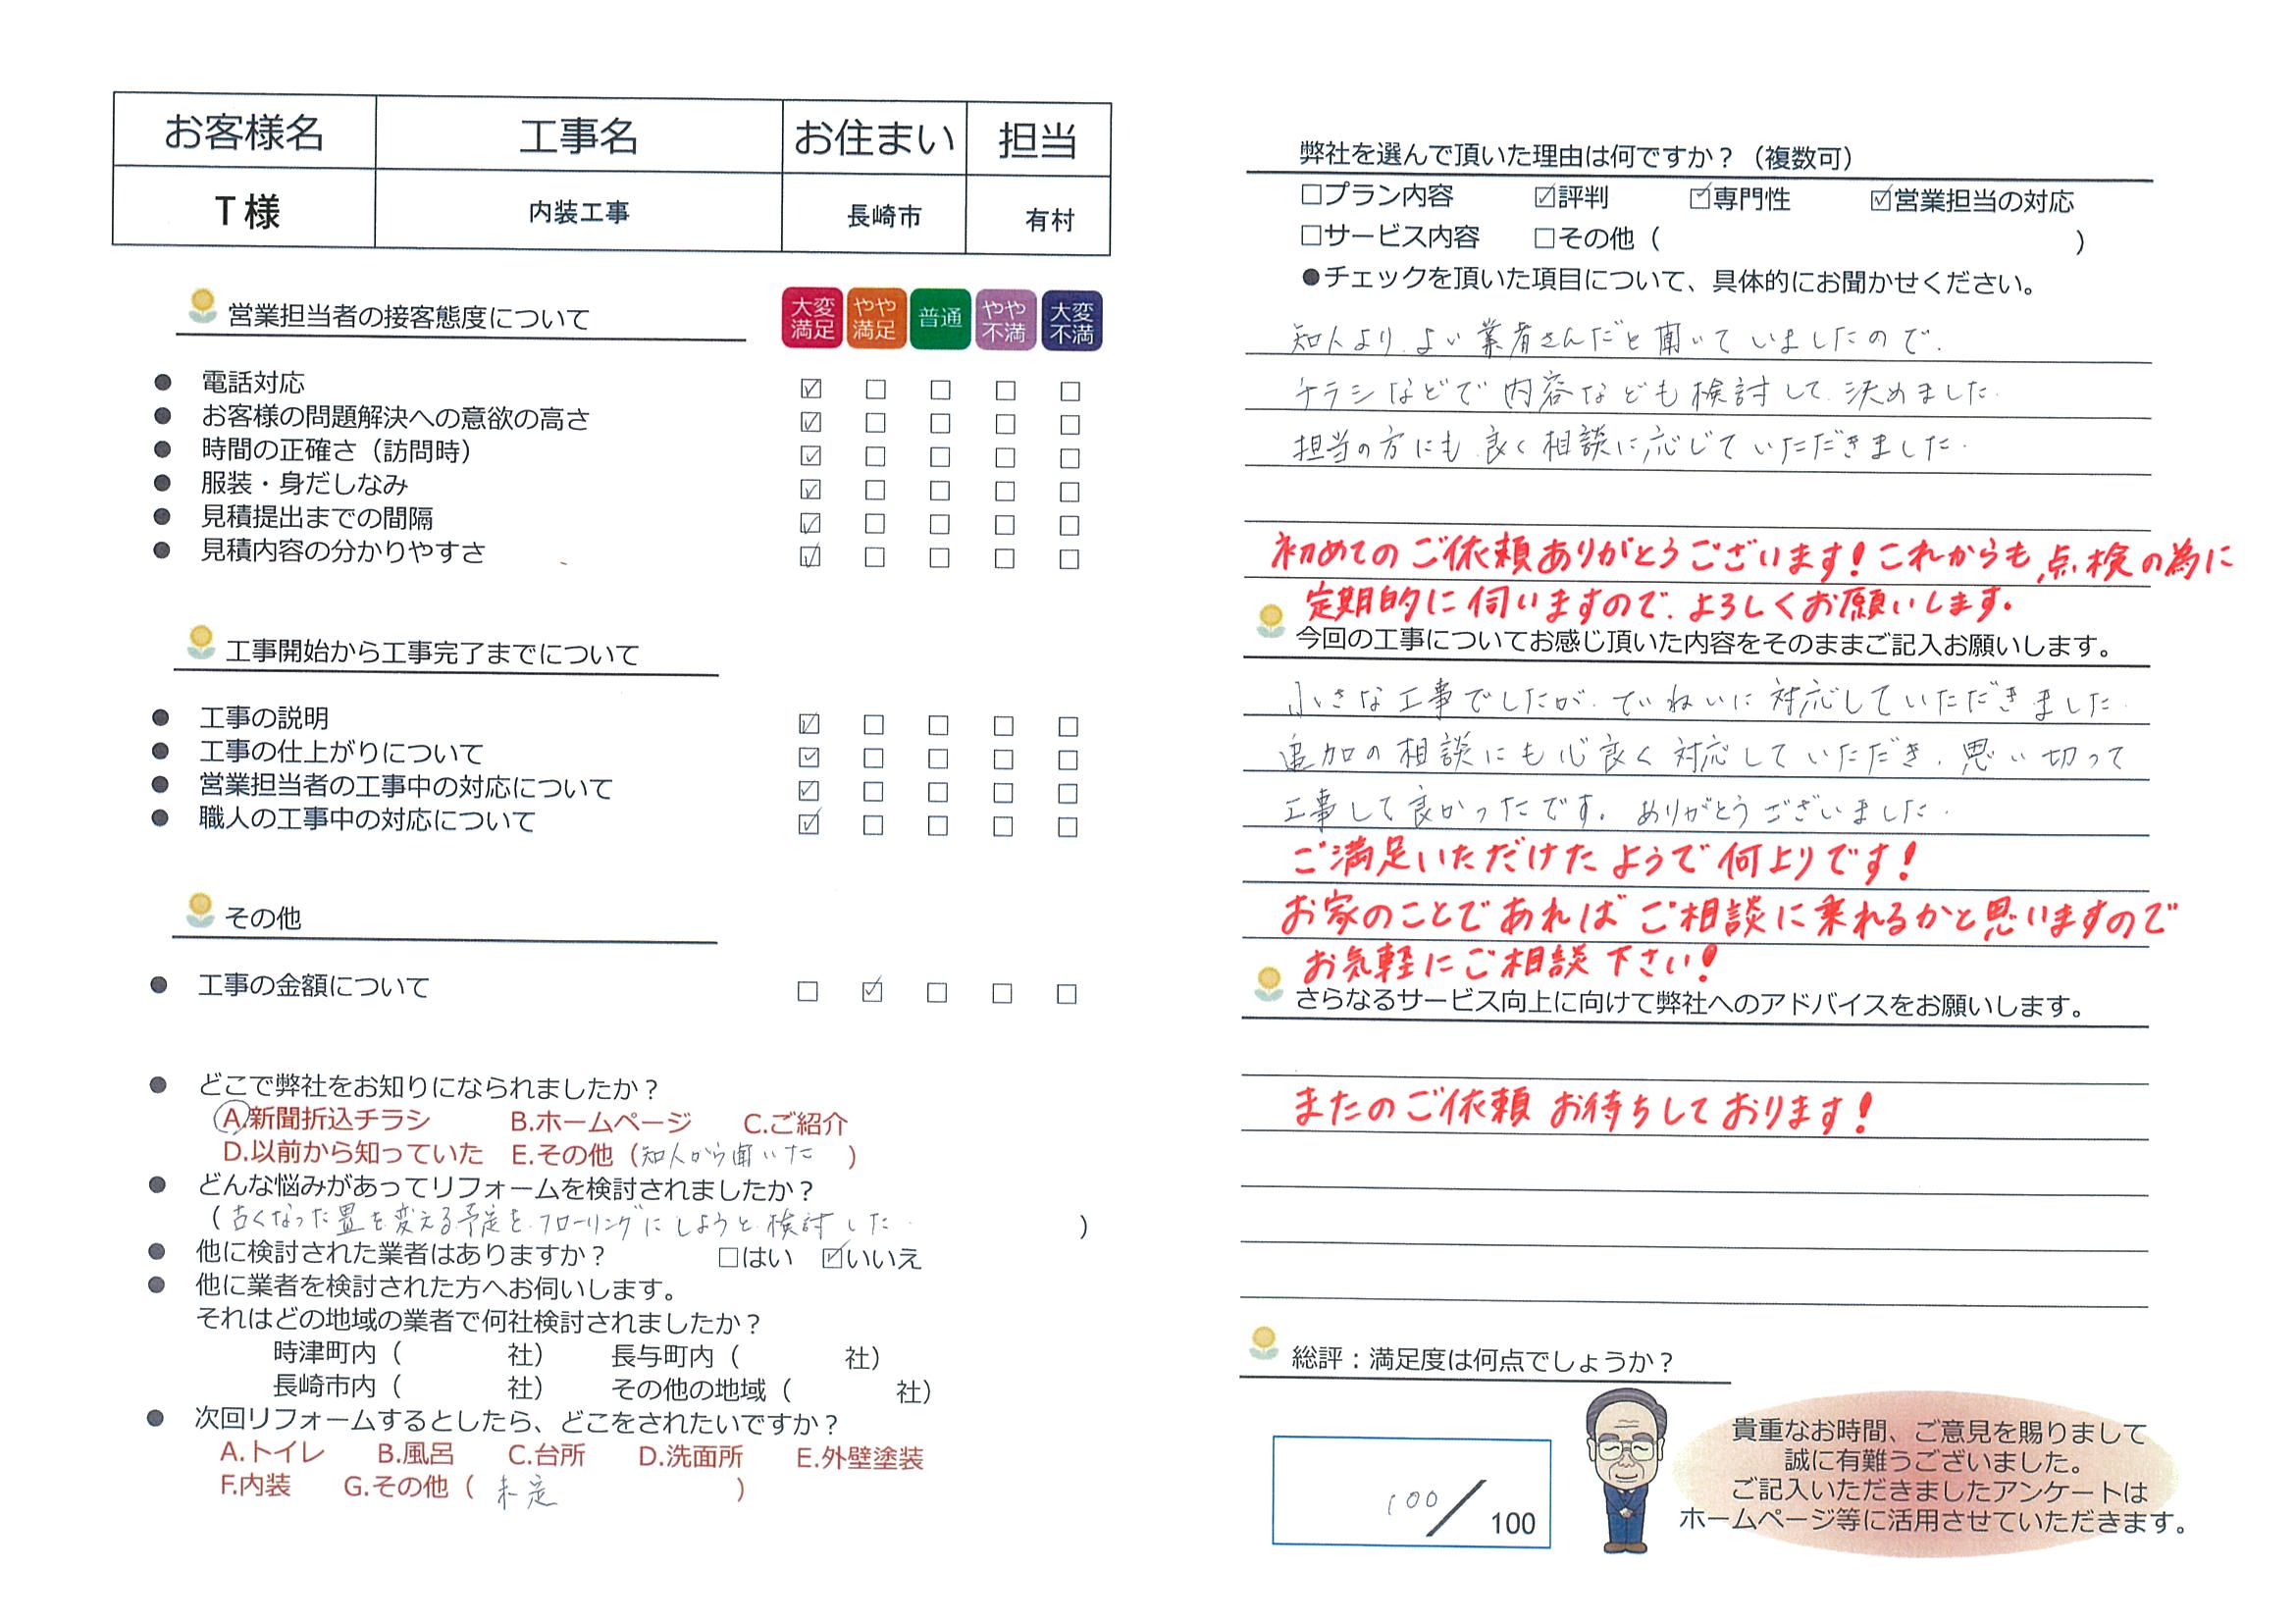 お客様名 工事名 お住まい 担当
T様 内装工事 長崎市 有村
営業担当者の接客態度について
大変満足 やや満足 普通 やや不満 大変不満
● 電話対応 ☑ □ □ □ □
● お客様の問題解決への意欲の高さ ☑ □ □ □ □
● 時間の正確さ（訪問時） ☑ □ □ □ □
● 服装・身だしなみ ☑ □ □ □ □
● 見積提出までの間隔 ☑ □ □ □ □
● 見積内容の分かりやすさ ☑ □ □ □ □
工事開始から工事完了までについて
● 工事の説明 ☑ □ □ □ □
● 工事の仕上がりについて ☑ □ □ □ □
● 営業担当者の工事中の対応について ☑ □ □ □ □
● 職人の工事中の対応について ☑ □ □ □ □
その他
● 工事の金額について □ ☑ □ □ □
● どこで弊社をお知りになられましたか？
A.新聞折込チラシ B.ホームページ C.ご紹介
D.以前から知っていた E.その他（知人から聞いた）
● どんな悩みがあってリフォームを検討されましたか？
（古くなった畳を変える予定をフローリングにしようと検討した）
● 他に検討された業者はありますか？ □はい ☑いいえ
● 他に業者を検討された方へお伺いします。
それはどの地域の業者で何社検討されましたか？
時津町内（ 社） 長与町内（ 社）
長崎市内（ 社） その他の地域（ 社）
● 次回リフォームするとしたら、どこをされたいですか？
A.トイレ B.風呂 C.台所 D.洗面所 E.外壁塗装
F.内装 G.その他（未定）
弊社を選んで頂いた理由は何ですか？（複数可）
□プラン内容 ☑評判 ☑専門性 ☑営業担当の対応
□サービス内容 □その他（ ）
●チェックを頂いた項目について、具体的にお聞かせください。
知人より、よい業者さんだと聞いていましたので、
チラシなどで内容なども検討して決めました。
担当の方にも良く相談に応じていただきました。
初めてのご依頼ありがとうございます！これからも点検の為に
定期的に伺いますので、よろしくお願いします。
今回の工事についてお感じ頂いた内容をそのままご記入お願いします。
小さな工事でしたが、ていねいに対応していただきました。
追加の相談にも心良く対応していただき、思い切って
工事して良かったです。ありがとうございました。
ご満足いただけたようで何よりです！
お家のことであればご相談に乗れるかと思いますので
お気軽にご相談下さい！
さらなるサービス向上に向けて弊社へのアドバイスをお願いします。
またのご依頼お待ちしております！
総評：満足度は何点でしょうか？
100／100
貴重なお時間、ご意見を賜りまして
誠に有難うございました。
ご記入いただきましたアンケートは
ホームページ等に活用させていただきます。